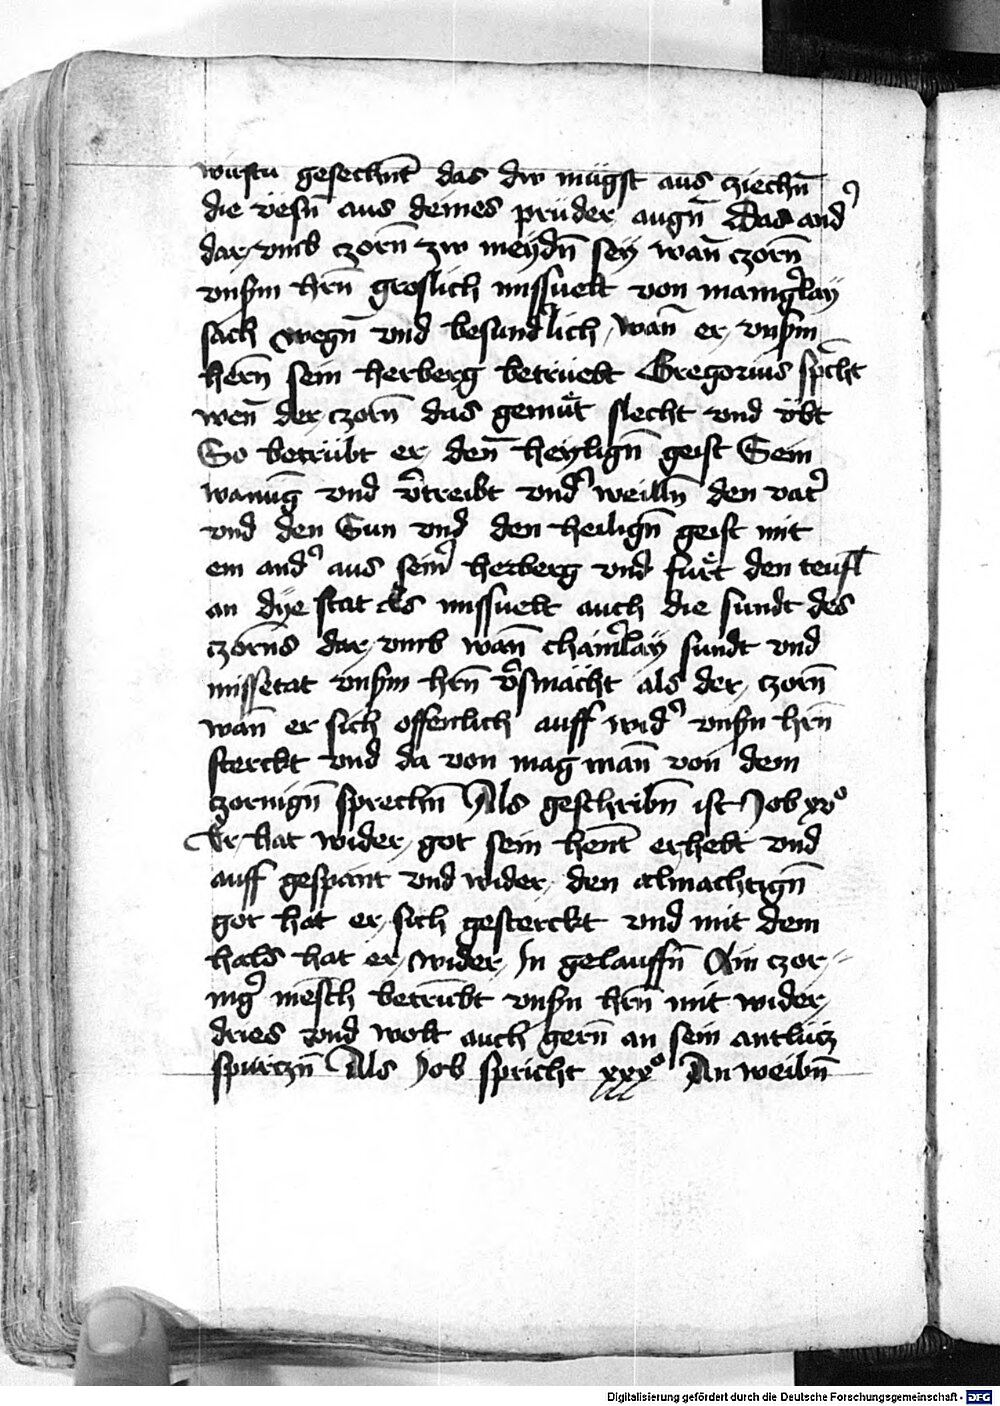 wirstu gesechnt das dw mügst aus ziechn̄
die vesn̄ aus deines prüder augn̄ Das and᾽
dar vmb czorn̄ zw meydn̄ sey wan̄ czorn̄
vnsm hrn̄ groslich missuelt von manig᾽lay
sach wegn̄ vnd besund᾽lich wan̄ er vnsm
hern̄ sein herberg betrüebt Gregorius spricht
wen̄ der czorn̄ das gemüt slecht vnd übt
So betrübt er den̄ heylign̄ geist Sein
wanūg vnd v᾽treibt vnd᾽ weilln̄ den vat᾽
vnd den Sun vnd den heilign̄ geist mit
ein and᾽ aus seim᾽ herberg vnd fürt den teufl
an dye stat Es missuelt auch die sundt des
czorns dar vmb wan̄ chain᾽lay sundt vnd
missetat vnsm hrn̄ v᾽smächt als der czorn̄
wan̄ er sich offenlich auff wid᾽ vnsn hrn̄
sterckt vnd da von mag man̄ von dem
czornign̄ sprechn̄ Als geschribn̄ ist Job xvº
Er hat wider got sein hent erhebt vnd
auff gespant vnd wider den almachtign̄
got hat er sich gesterckt vnd mit dem
hals hat er wider In gelauffn̄ Ain czor-
nig᾽ mēsch betrübt vnsn hrn̄ mit wider
dries vnd wolt auch gern̄ an sein antlütz
spürczn̄ Als Job spricht xxxº An weibn̄
Digitalisierung gefördert durch die Deutsche Forschungsgemeinschaft - DFG